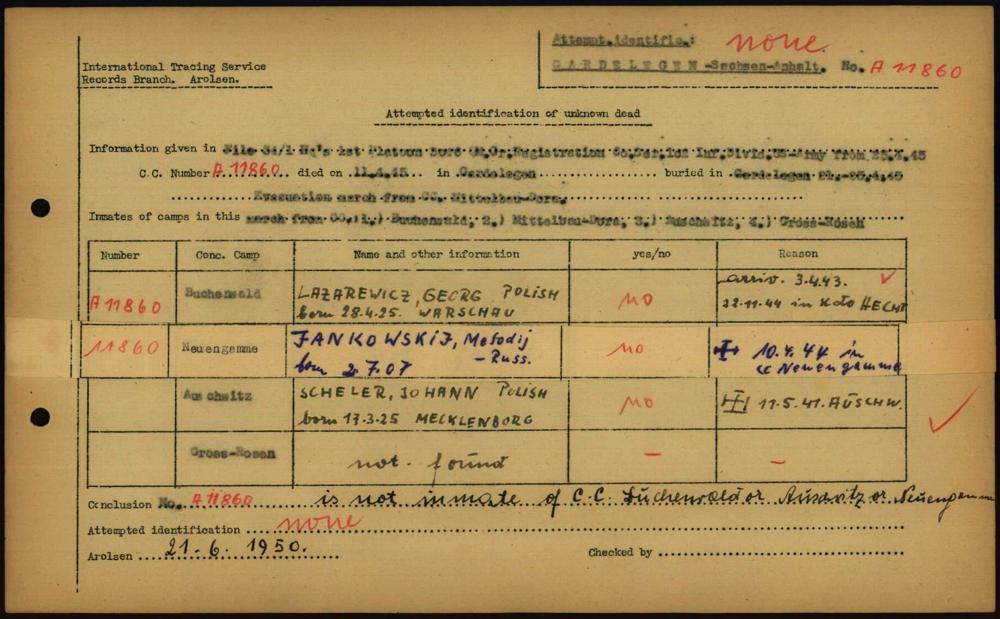 Attempt.identific.: none
International Tracing Service
Records Branch. Arolsen.
GARDELEGEN -Sachsen-Anhalt. No. A 11860
Attempted identification of unknown dead
Information given in File 54/1 Hq's 1st Platoon 3045 Registration from 25.X.45
C.C. Number A 11860. died on 11.4.45 in Gardelegen buried in Gardelegen 21.-25.4.45
Evacuation march from CC. Mittelbau-Dora.
Inmates of camps in this march from CC.: 1.) Buchenwald, 2.) Mittelbau-Dora, 3.) Auschwitz, 4.) Gross-Rosen
Number Conc. Camp Name and other information yes/no Reason
A 11860 Buchenwald LAZAREWICZ, GEORG POLISH no arriv. 3.4.43.
born 28.4.25. WARSCHAU 22-11-44 in Kdo HECHT
11860 Neuengamme JANKOWSKIJ, Mefodij no 10.4.44 in
- Russ.
born 2.7.07 CC Neuengamme
Auschwitz SCHELER, JOHANN POLISH no 11.5.41. AUSCHW.
born 17.3.25 MECKLENBORG
Gross-Rosen not found - -
Conclusion No. A 11860 is not inmate of C.C. Buchenwald or Auschwitz or Neuengamme
Attempted identification none
Arolsen 21.6.1950. Checked by